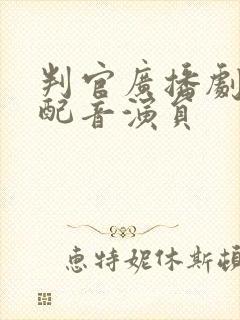 判官廣播劇
配音演員
恵特妮休斯頓